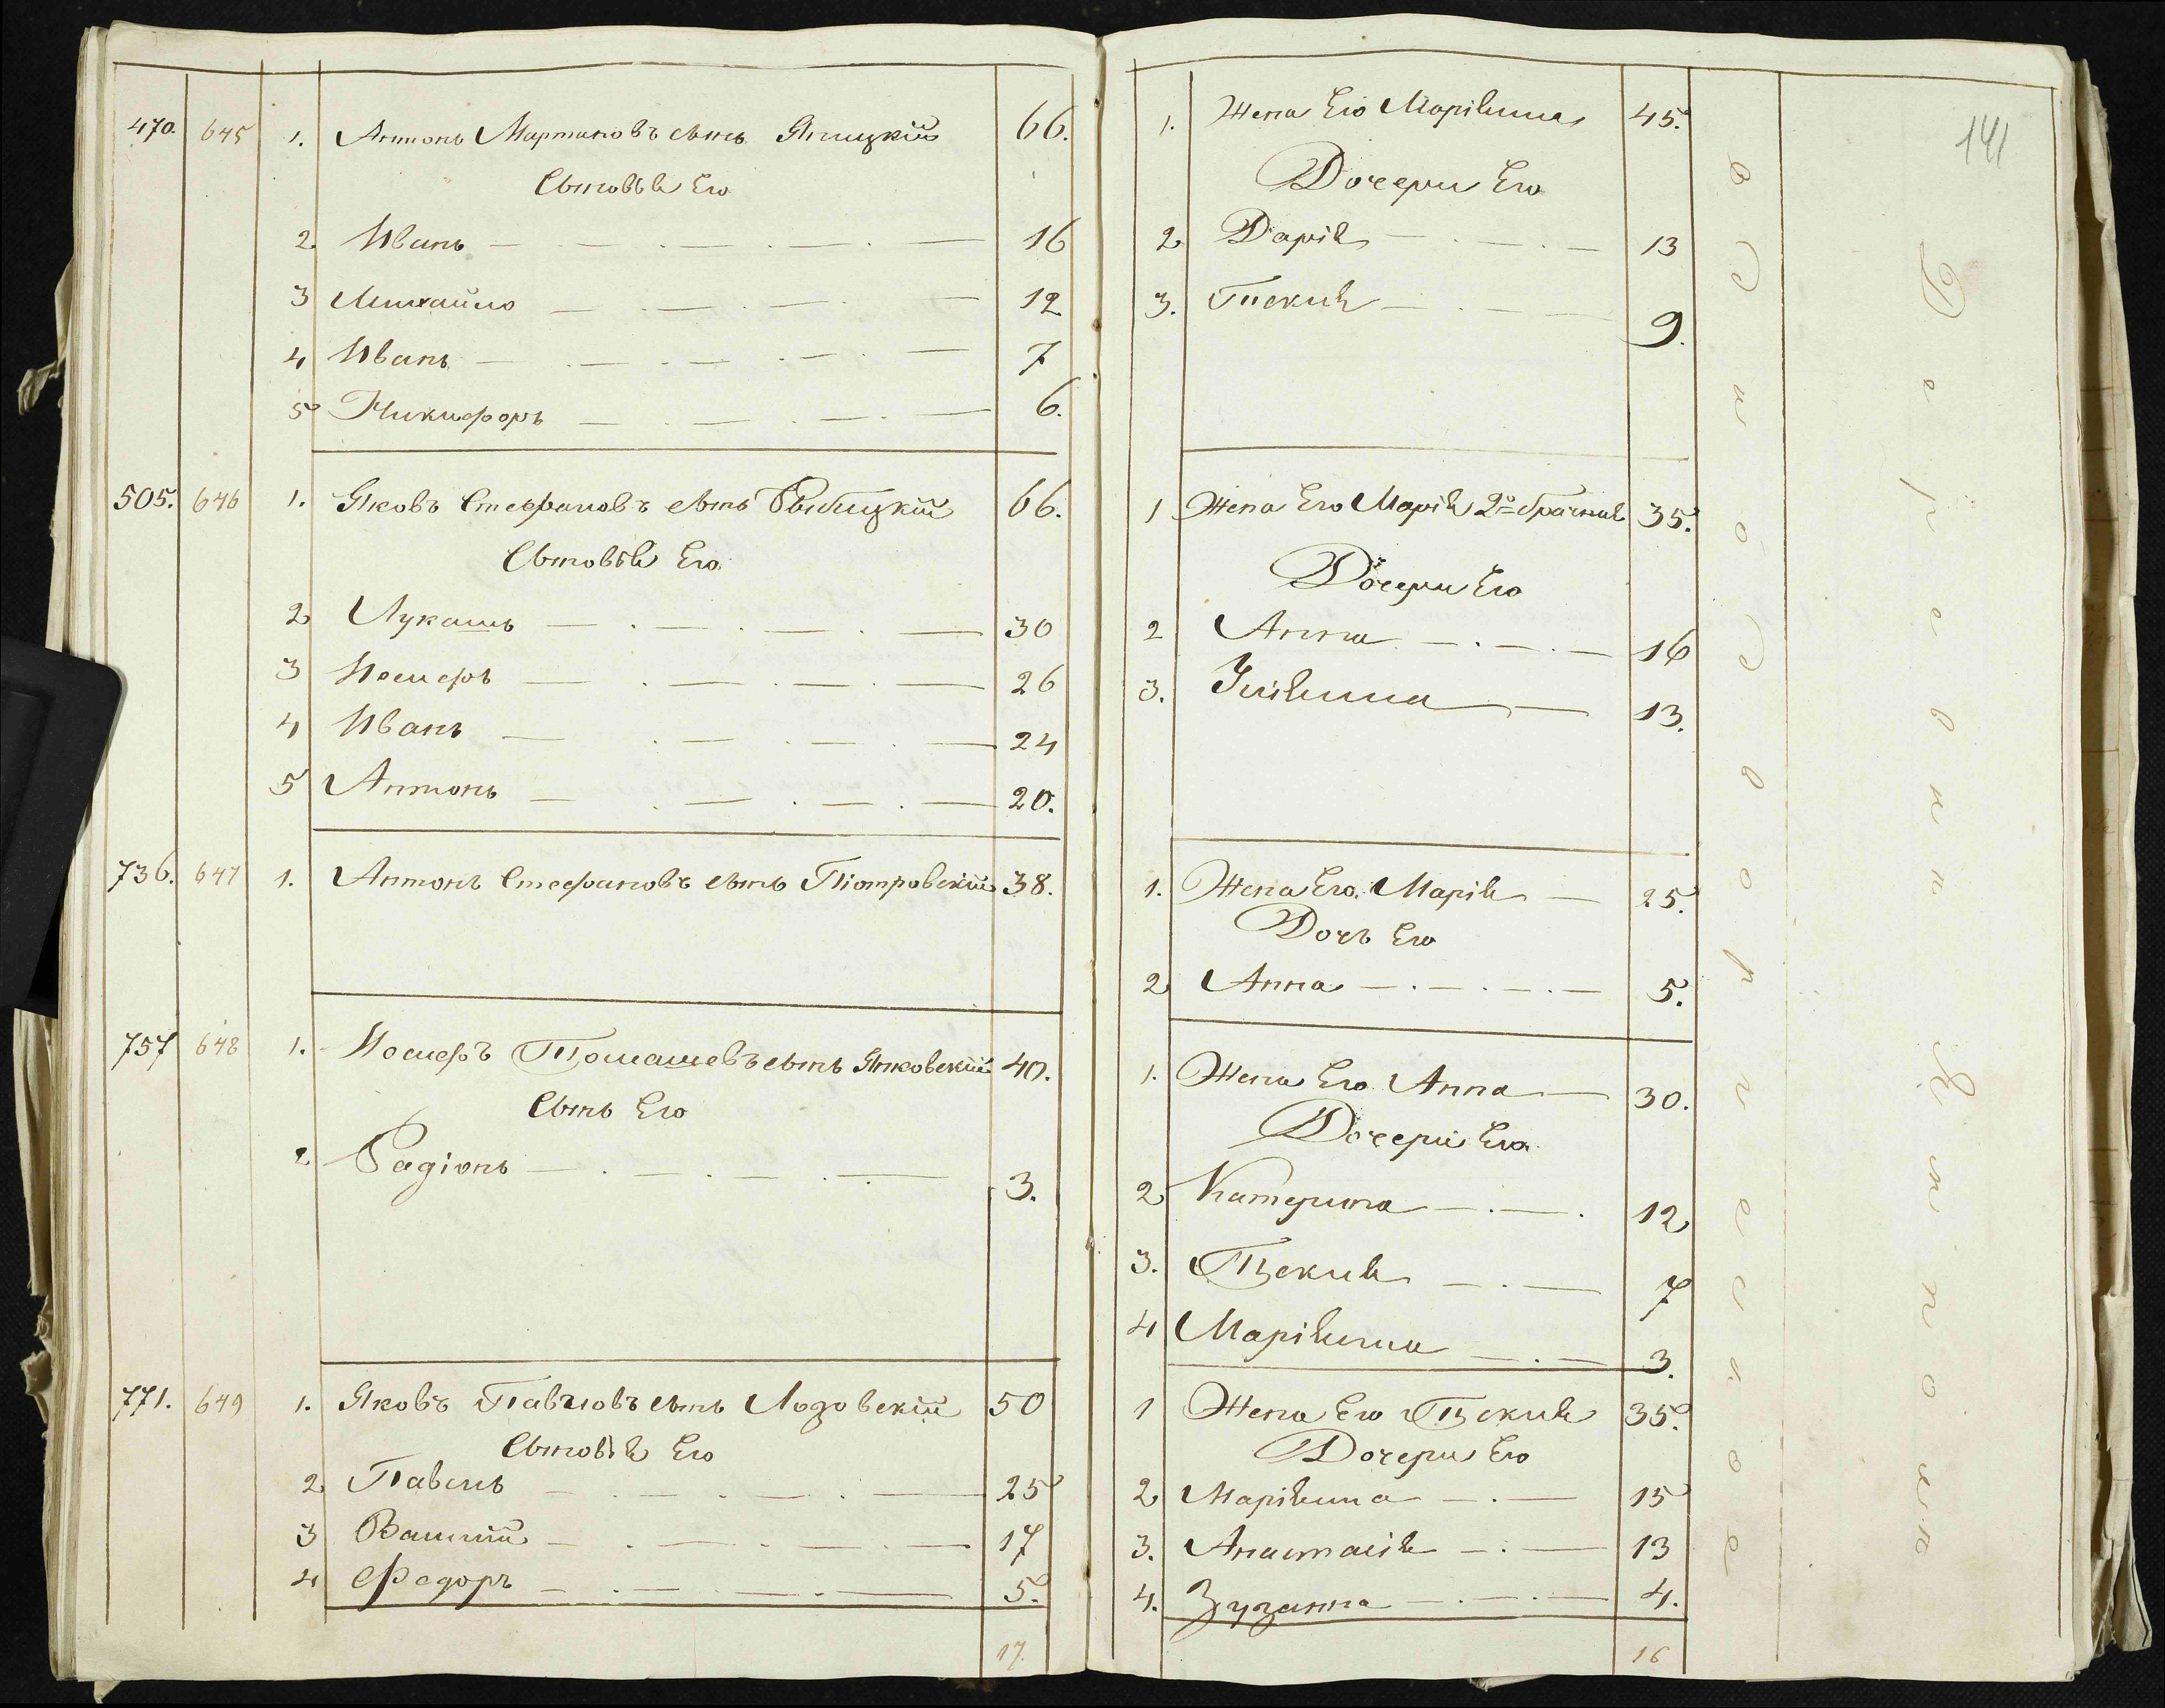 470. 645 1. Антонъ Мартановъ сынъ Яницкій 66.
Сыновья Его
2 Иванъ 16
3 Михайло 12
4 Иванъ 7
5 Никифоръ 6.
505. 646 1. Яковъ Стефановъ сынъ Рыбицкій 66.
Сыновья Его
2 Лукашъ 30
3 Иосифъ 26
4 Иванъ 24
5 Антонъ 20.
736. 647 1. Антонъ Стефановъ сынъ Піотровскій 38.
757 648 1. Иосифъ Томашевъ сынъ Янковскій 40.
Сынъ Его
2 Радіонъ 3.
771. 649 1. Яковъ Павловъ сынъ Лозовскій 50
Сыновья Его
2 Павелъ 25
3 Василій 17
4 Федоръ 5.
17.
141
1. Жена Его Маріянна 45.
Дочери Его
2 Дарія 13
3. Текля 9.
1 Жена Его Марія 2о брачная 35.
Дочери Его
2 Анна 16
3. Уліянна 13.
1. Жена Его Марія 25.
Дочь Его
2 Анна 5.
1. Жена Его Анна 30.
Дочери Его
2 Катерина 12
3. Текля 7
4 Маріянна 3.
1 Жена Его Текля 35.
Дочери Его
2 Маріянна 15
3. Анастасія 13
4. Зузанна 4.
16
Однодворческое
Деревни